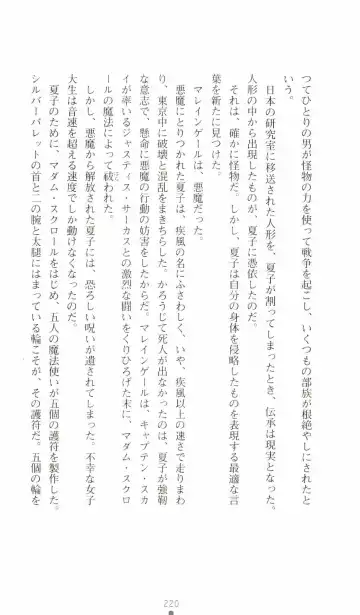 つてひとりの男が怪物の力を使って戦争を起こし、いくつもの部族が根絶やしにされたと
いう。
日本の研究室に移送された人形を、夏子が割ってしまったとき、伝承は現実となった。
人形の中から出現したものが、夏子に憑依したのだ。
それは、確かに怪物だ。しかし、夏子は自分の身体を侵略したものを表現する最適な言
葉を新たに見つけた。
マレインゲールは、悪魔だった。
悪魔にとりつかれた夏子は、疾風の名にふさわしく、いや、疾風以上の速さで走りまわ
り、東京中に破壊と混乱をまきちらした。かろうじて死人が出なかったのは、夏子が強靭
な意志で、懸命に悪魔の行動の妨害をしたからだ。マレインゲールは、キャプテン・スカ
イが率いるジャスティス・サーカスとの激烈な闘いをくりひろげた末に、マダム・スクロ
ールの魔法によって祓われた。
しかし、悪魔から解放された夏子には、恐ろしい呪いが遺されてしまった。不幸な女子
大生は音速を超える速度でしか動けなくなったのだ。
夏子のために、マダム・スクロールをはじめ、五人の魔法使いが五個の護符を製作した。
シルバーバレットの首と二の腕と太腿にはまっている輪こそが、その護符だ。五個の輪を
220